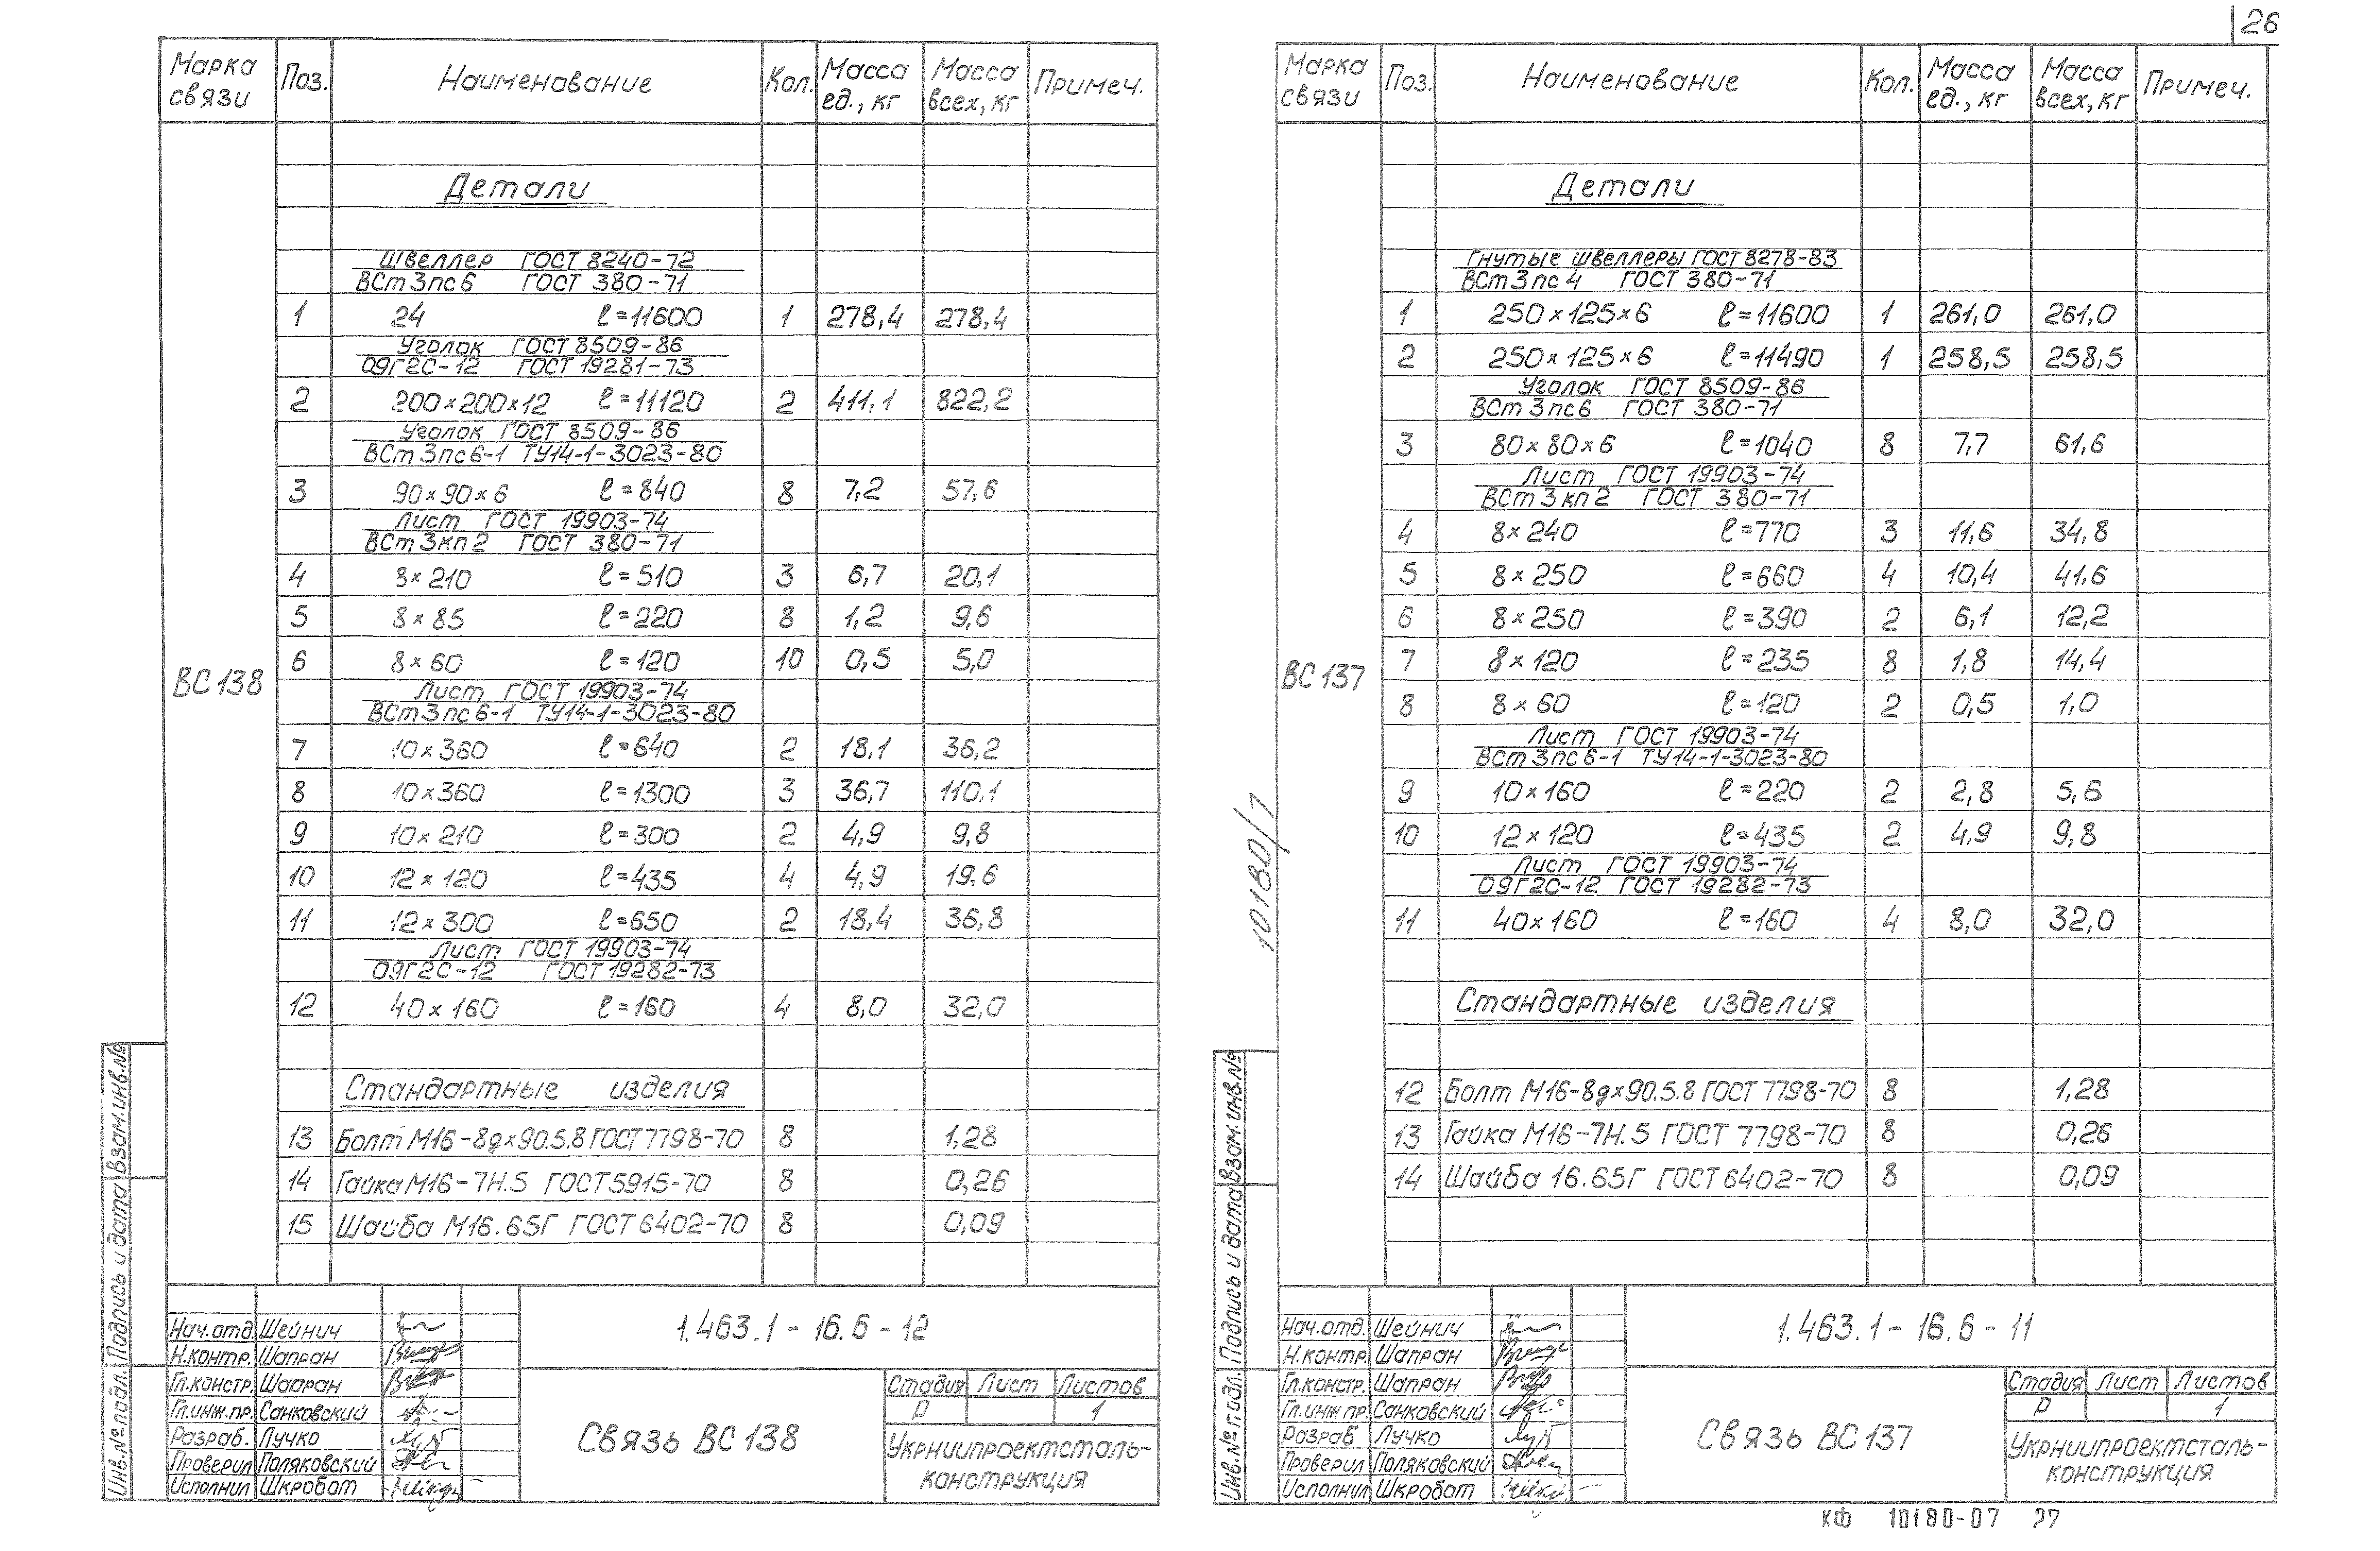 26
Марка связи Поз. Наименование Кол. Масса ед., кг Масса всех, кг Примеч.
ВС 138
Детали
Швеллер ГОСТ 8240-72
ВСт3пс6 ГОСТ 380-71
1 24 ℓ=11600 1 278,4 278,4
Уголок ГОСТ 8509-86
09Г2С-12 ГОСТ 19281-73
2 200×200×12 ℓ=11120 2 411,1 822,2
Уголок ГОСТ 8509-86
ВСт3пс6-1 ТУ14-1-3023-80
3 90×90×6 ℓ=840 8 7,2 57,6
Лист ГОСТ 19903-74
ВСт3кп2 ГОСТ 380-71
4 8×210 ℓ=510 3 6,7 20,1
5 8×85 ℓ=220 8 1,2 9,6
6 8×60 ℓ=120 10 0,5 5,0
Лист ГОСТ 19903-74
ВСт3пс6-1 ТУ14-1-3023-80
7 10×360 ℓ=640 2 18,1 36,2
8 10×360 ℓ=1300 3 36,7 110,1
9 10×210 ℓ=300 2 4,9 9,8
10 12×120 ℓ=435 4 4,9 19,6
11 12×300 ℓ=650 2 18,4 36,8
Лист ГОСТ 19903-74
09Г2С-12 ГОСТ 19282-73
12 40×160 ℓ=160 4 8,0 32,0
Стандартные изделия
13 Болт М16-8g×90.5.8 ГОСТ 7798-70 8 1,28
14 Гайка М16-7Н.5 ГОСТ 5915-70 8 0,26
15 Шайба М16.65Г ГОСТ 6402-70 8 0,09
Инв.№ подл. Подпись и дата Взам.инв.№
Нач.отд. Шейнич
Н.контр. Шапран
Гл.констр. Шапран
Гл.инж.пр. Санковский
Разраб. Лучко
Проверил Поляковский
Исполнил Шкробот
1.463.1-16.6-12
Связь ВС 138
Стадия Лист Листов
Р 1
Укрниипроектсталь-
конструкция
Марка связи Поз. Наименование Кол. Масса ед., кг Масса всех, кг Примеч.
ВС 137
Детали
Гнутые швеллеры ГОСТ 8278-83
ВСт3пс4 ГОСТ 380-71
1 250×125×6 ℓ=11600 1 261,0 261,0
2 250×125×6 ℓ=11490 1 258,5 258,5
Уголок ГОСТ 8509-86
ВСт3пс6 ГОСТ 380-71
3 80×80×6 ℓ=1040 8 7,7 61,6
Лист ГОСТ 19903-74
ВСт3кп2 ГОСТ 380-71
4 8×240 ℓ=770 3 11,6 34,8
5 8×250 ℓ=660 4 10,4 41,6
6 8×250 ℓ=390 2 6,1 12,2
7 8×120 ℓ=235 8 1,8 14,4
8 8×60 ℓ=120 2 0,5 1,0
Лист ГОСТ 19903-74
ВСт3пс6-1 ТУ14-1-3023-80
9 10×160 ℓ=220 2 2,8 5,6
10 12×120 ℓ=435 2 4,9 9,8
Лист ГОСТ 19903-74
09Г2С-12 ГОСТ 19282-73
11 40×160 ℓ=160 4 8,0 32,0
Стандартные изделия
12 Болт М16-8g×90.5.8 ГОСТ 7798-70 8 1,28
13 Гайка М16-7Н.5 ГОСТ 7798-70 8 0,26
14 Шайба 16.65Г ГОСТ 6402-70 8 0,09
10180/7
Инв.№ подл. Подпись и дата Взам.инв.№
Нач.отд. Шейнич
Н.контр. Шапран
Гл.констр. Шапран
Гл.инж.пр. Санковский
Разраб Лучко
Проверил Поляковский
Исполнил Шкробот
1.463.1-16.6-11
Связь ВС 137
Стадия Лист Листов
Р 1
Укрниипроектсталь-
конструкция
КФ 10180-07 27